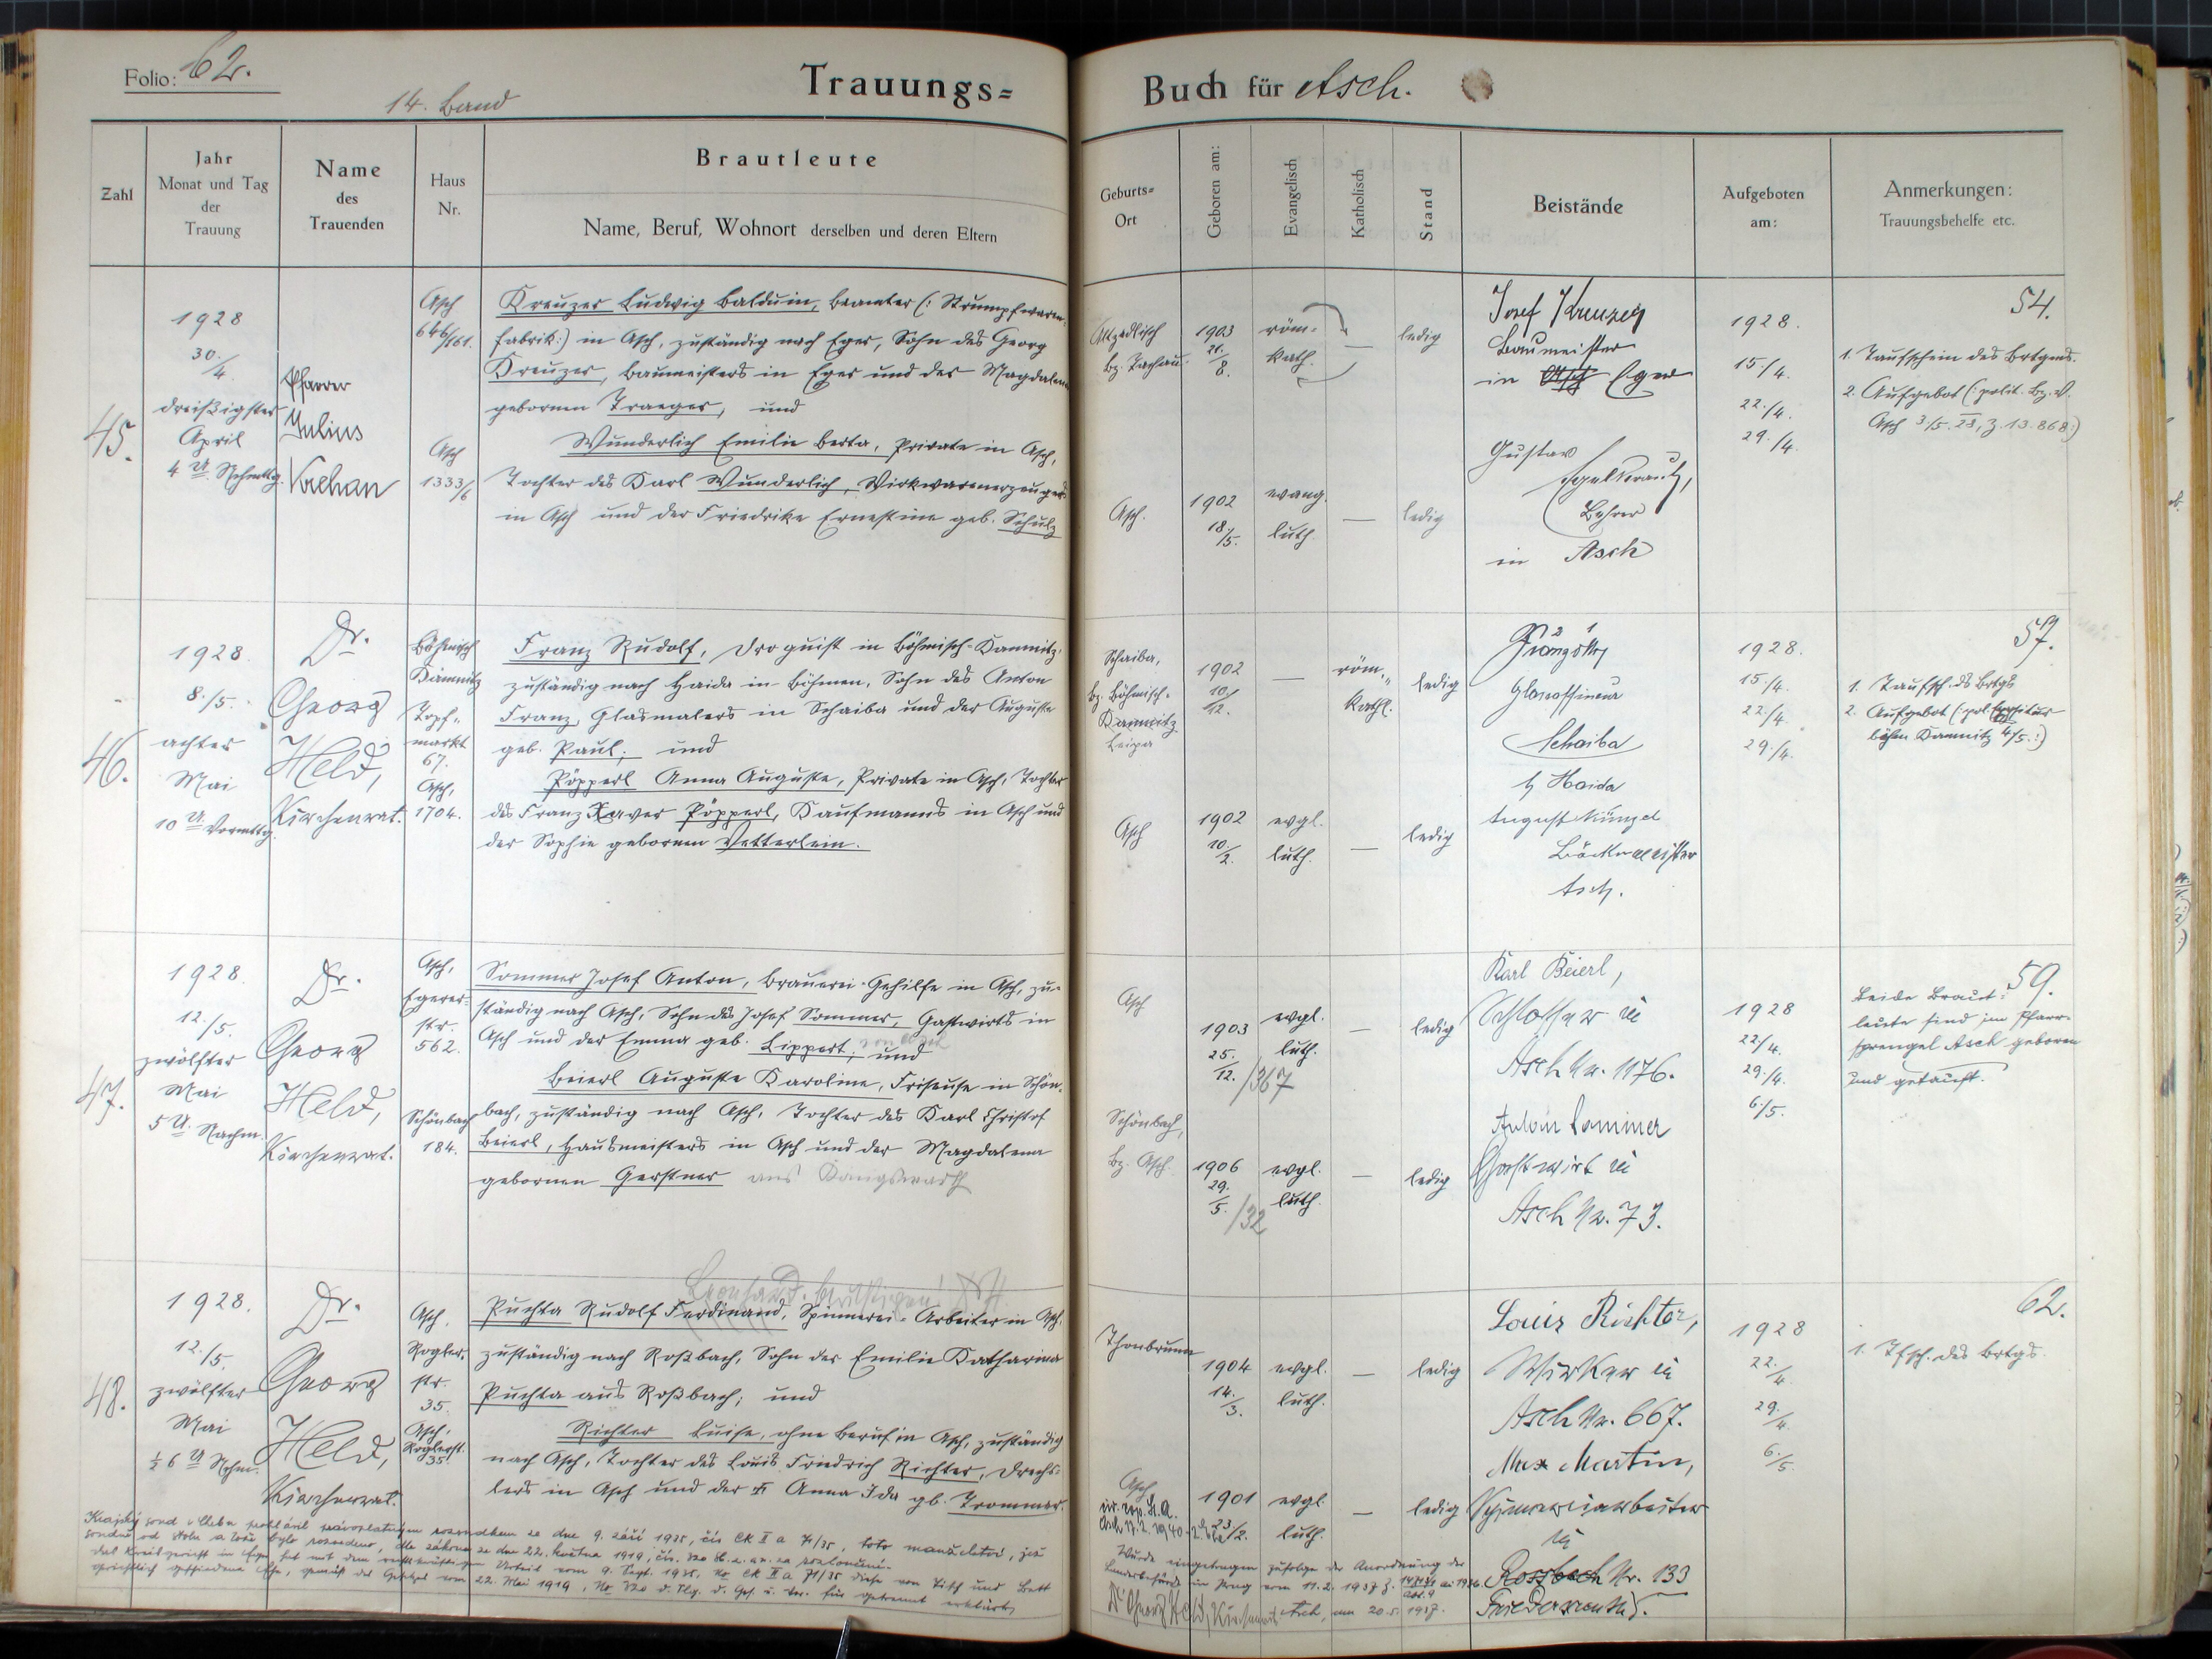 Folio: 62.
14. Band
Trauungs=
Buch für Asch.
Zahl
Jahr
Monat und Tag
der
Trauung
Name
des
Trauenden
Haus
Nr.
Brautleute
Name, Beruf, Wohnort derselben und deren Eltern
Geburts=
Ort
Geboren am:
Evangelisch
Katholisch
Stand
Beistände
Aufgeboten
am:
Anmerkungen:
Trauungsbehelfe etc.
45.
1928
30./4.
dreißigster
April
4 U. Nchmttg.
Pfarrer
Julius
Krehan
Asch
646/161.
Kreuzer Ludwig Balduin, Beamter (: Strumpfwaren-
fabrik:) in Asch, zuständig nach Eger, Sohn des Georg
Kreuzer, Baumeisters in Eger und der Magdalena
gebornen Traeger, und
Asch
1333/6
Wunderlich Emilie Berta, Private in Asch,
Tochter des Karl Wunderlich, Wirkwarenerzeugers
in Asch und der Friedrike Ernestine geb. Schulz
Altzedlisch
bz. Tachau.
1903
21./8.
röm.
kath.
—
ledig
Asch.
1902
18./5.
evang.
luth.
—
ledig
Josef Kreuzer
Baumeister
in Eger
Gustav
Lehrer
in Asch
1928.
15./4.
22./4.
29./4.
54.
1. Taufschein des Brtgms.
2. Aufgebot (: polit. Bz. V.
Asch 3/5. 28, Z. 13.868:)
46.
1928.
8./5.
achter
Mai
10 U. Vormttg.
Dr.
Georg
Held,
Kirchenrat.
Böhmisch
Kamnitz
Topf-
markt
67.
Asch,
1704.
Franz Rudolf, Droguist in Böhmisch-Kamnitz,
zuständig nach Haida in Böhmen, Sohn des Anton
Franz, Glasmalers in Schaiba und der Auguste
geb. Paul; und
Pöpperl Anna Auguste, Private in Asch, Tochter
des Franz Xaver Pöpperl, Kaufmanns in Asch und
der Sophie gebornen Vetterlein.
Schaiba,
bz. Böhmisch-
Kamnitz
Leipa
1902
10./12.
—
röm.
kath.
ledig
Asch
1902
10./2.
evgl.
luth.
—
ledig
Glasraffineur
Schaiba
b/ Haida
August Künzel
Bäckermeister
Asch.
1928.
15./4.
22./4.
29./4.
57.
1. Taufsch. ds Brtgs
2. Aufgebot (: pol. Expositur
böhm. Kamnitz 4/5.:)
47.
1928.
12./5.
zwölfter
Mai
5 U. Nachm.
Dr.
Georg
Held,
Kirchenrat.
Asch,
Egerer-
str.
562.
Schönbach
184.
Sommer Josef Anton, Brauerei-Gehilfe in Asch, zu-
ständig nach Asch, Sohn des Josef Sommer, Gastwirts in
Asch und der Emma geb. Lippert; und
Beierl Auguste Karoline, Friseuse in Schön-
bach, zuständig nach Asch, Tochter des Karl Christof
Beierl, Hausmeisters in Asch und der Magdalena
gebornen Gerstner aus Königswarth
Asch
1903
25./12. /367
evgl.
luth.
—
ledig
Schönbach,
Bz. Asch.
1906
29./5. /32
evgl.
luth.
—
ledig
Karl Beierl,
Schlosser in
Asch Nr. 1176.
Anton Sommer
Gastwirt in
Asch Nr. 73.
1928
22/4.
29./4.
6./5.
59.
Beide Braut-
leute sind im Pfarr-
sprengel Asch geboren
und getauft.
48.
1928.
12./5.
zwölfter
Mai
½ 6 U Nchm.
Dr.
Georg
Held,
Kirchenrat.
Asch,
Rogler-
str.
35.
Asch,
Roglerst.
35.
Puchta Rudolf Ferdinand, Spinnerei-Arbeiter in Asch,
zuständig nach Roßbach, Sohn der Emilie Katharina
Puchta aus Roßbach; und
Richter Luise, ohne Beruf in Asch, zuständig
nach Asch, Tochter des Louis Friedrich Richter, Drechs-
lers in Asch und der Anna Ida gb. Trommer.
Thonbrunn
1904
14./3.
evgl.
luth.
—
ledig
Asch
1901
23/2.
evgl.
luth.
—
ledig
Louis Richter,
Wirker in
Asch Nr. 667.
Max Martin,
Spinnereiarbeiter
in
Rossbach Nr. 133
Friedersreuth.
1928
22./4.
29./4.
6./5.
62.
1. Tfsch. des Brtgs.
Krajský soud v Chebu prohlásil pravoplatným rozsudkem ze dne 9. září 1935, čís Ck II a 71/35, toto manželství, jež
soudně od stolu a lože bylo rozvedeno, dle zákona ze dne 22. května 1919, čís. 320 Sb. z. a n. za rozloučené.
Das Kreisgericht in Eger hat mit dem rechtskräftigen Urteil vom 9. Sept. 1935, No Ck II a 71/35 diese von Tisch und Bett
gerichtlich geschiedene Ehe, gemäß des Gesetzes vom 22. Mai 1919, No. 320 d. Slg. d. Ges. u. Ver. für getrennt erklärt.
Wurde eingetragen zufolge der Anordnung der
Landesbehörde in Prag vom 11.2.1937 Z.
Dr Georg Held, Kirchenrat Asch, am 20.5.1937.